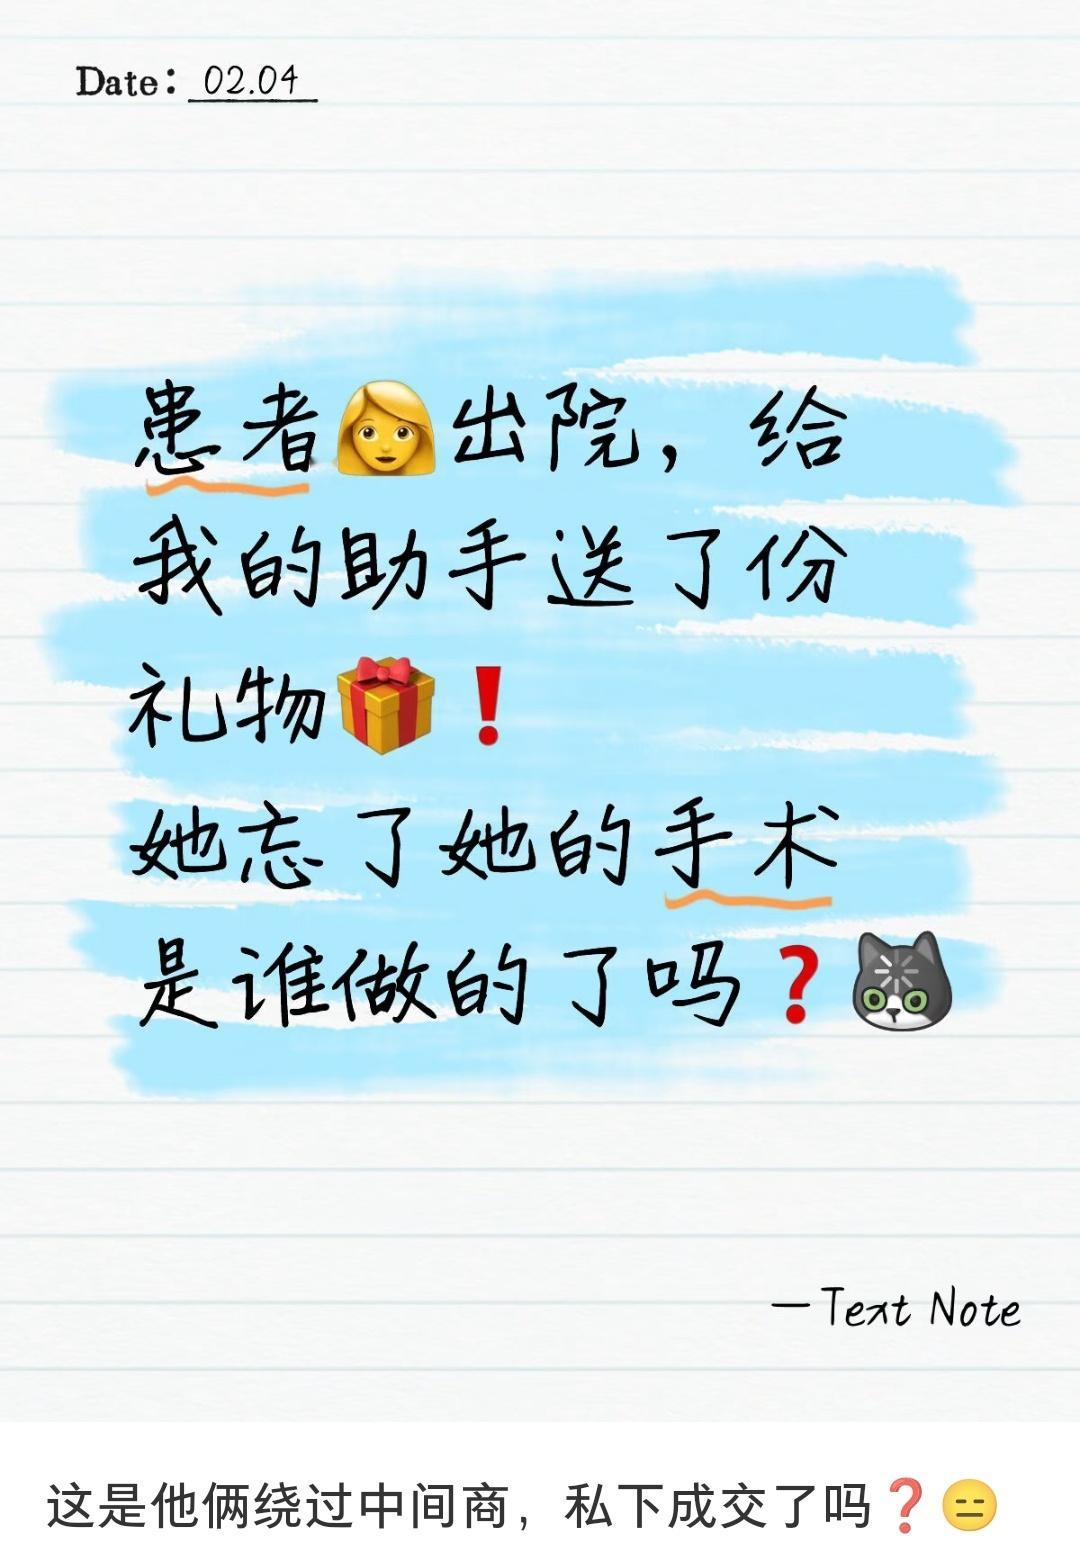 Date: 02.04
患者👩出院，给
我的助手送了份
礼物🎁❗
她忘了她的手术
是谁做的了吗❓🐱
—Text Note
这是他俩绕过中间商，私下成交了吗❓😑